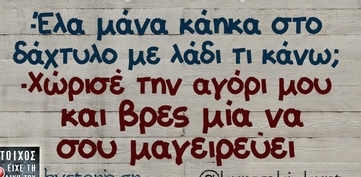 -Έλα μάνα κάηκα στο
δάχτυλο με λάδι τι κάνω;
-Χώρισέ την αγόρι μου
και βρες μία να
σου μαγειρεύει
ΤΟΙΧΟΣ
ΕΙΧΕ ΤΗ